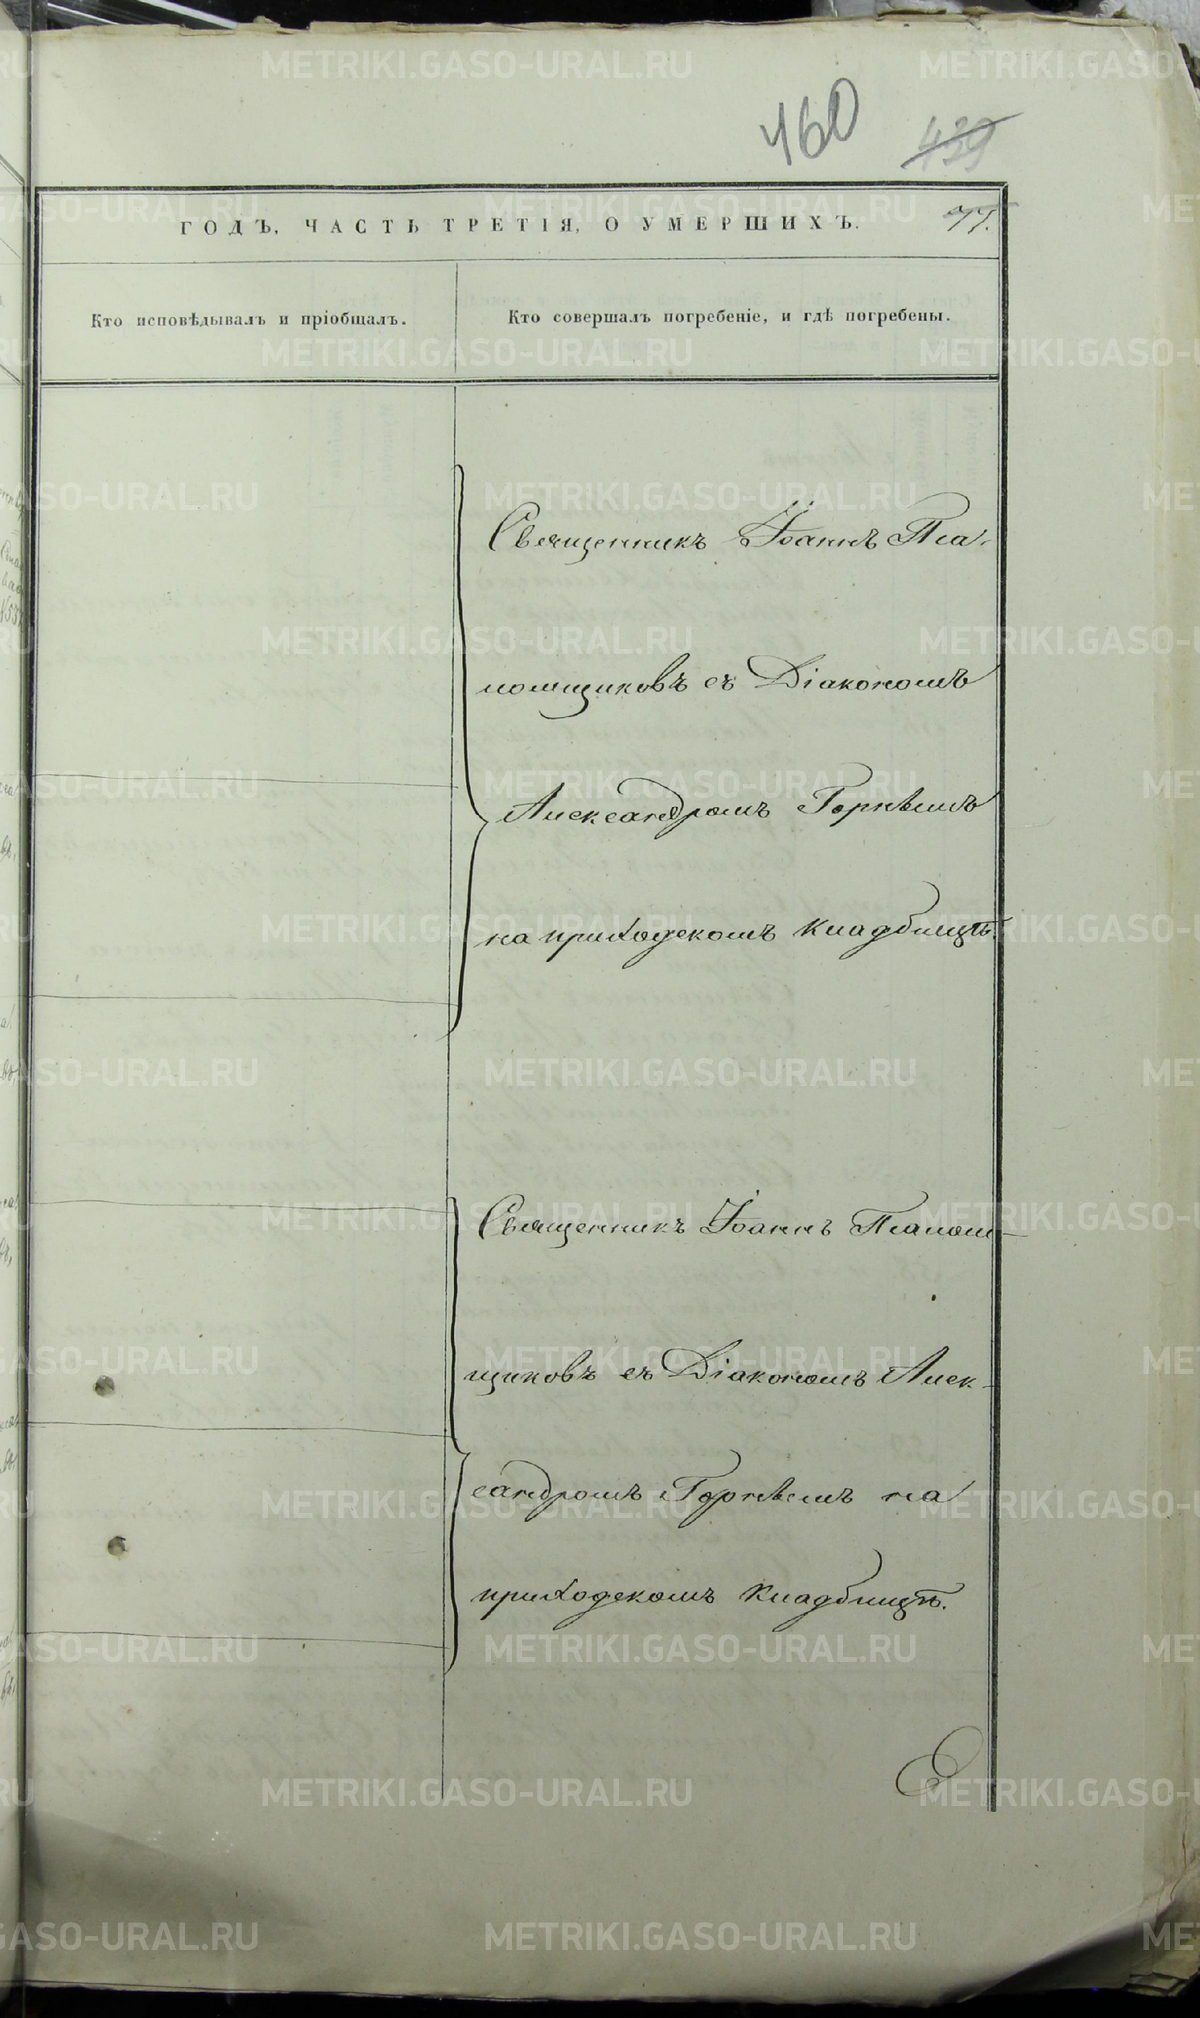 460 439
ГОДЪ, ЧАСТЬ ТРЕТІЯ, О УМЕРШИХЪ. 77.
Кто исповѣдывалъ и пріобщалъ.
Кто совершалъ погребеніе, и гдѣ погребены.
Священникъ Іоаннъ Пла-
мощиковъ съ Діакономъ
Александромъ Горнѣмъ
на приходскомъ кладбищѣ.
Священникъ Іоаннъ Пламом-
щиковъ съ Діакономъ Алек-
сандромъ Горнѣмъ на
приходскомъ кладбищѣ.
METRIKI.GASO-URAL.RU